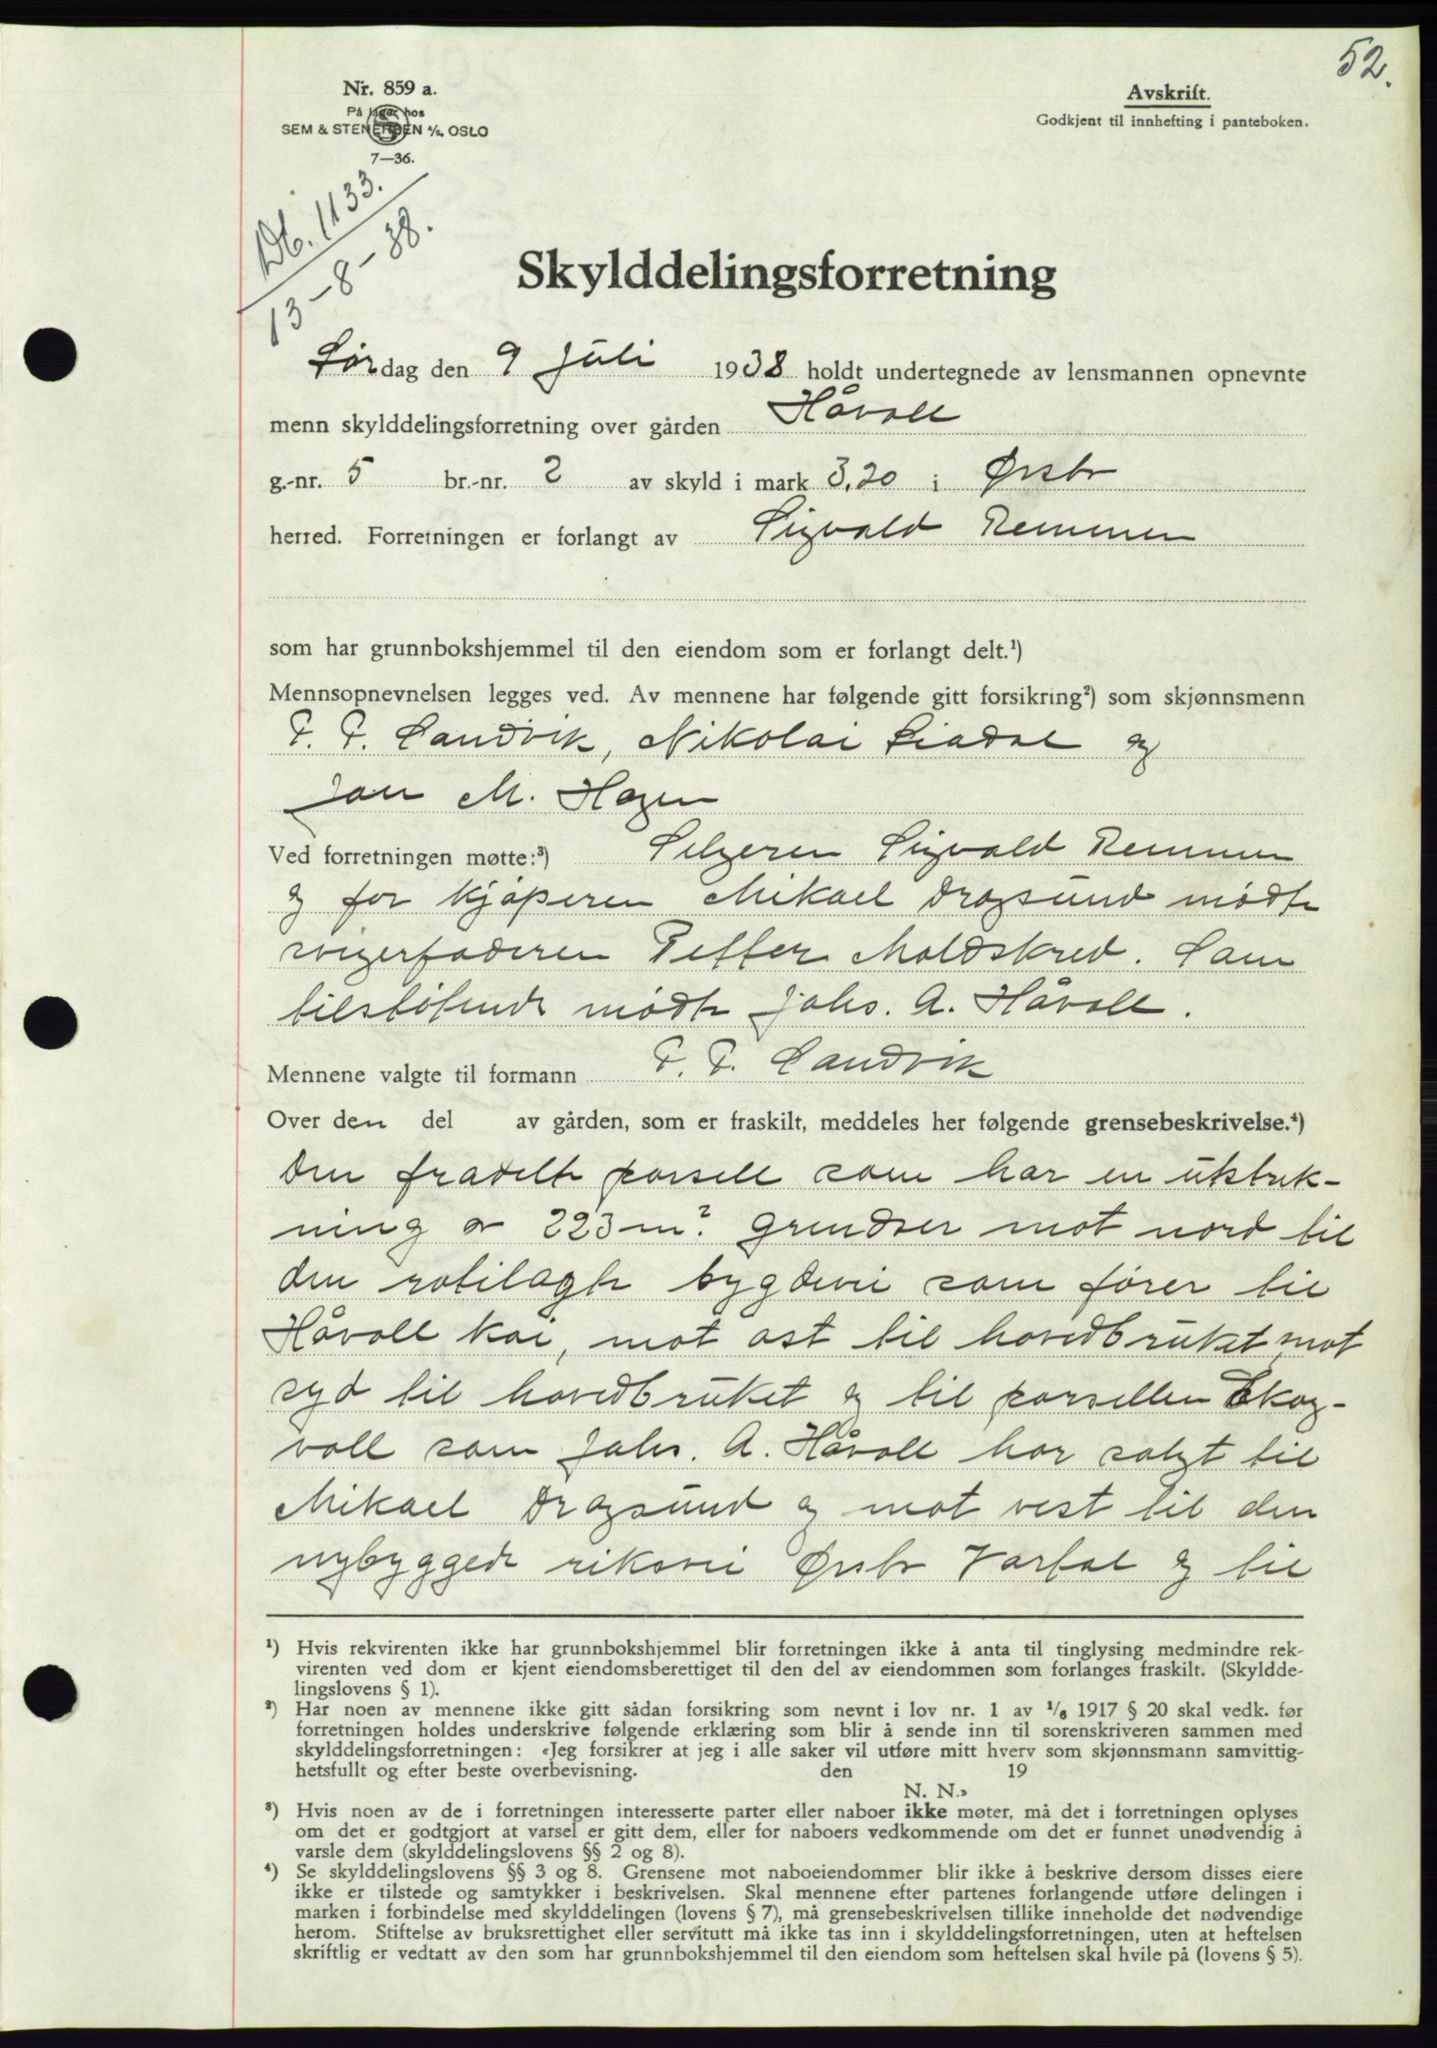 52.
Nr. 859 a.
På lager hos
SEM & STENERSEN A/S. OSLO
7—36.
Avskrift.
Godkjent til innhefting i panteboken.
Db. 1133.
13-8-38.
Skylddelingsforretning
Lørdag den 9 Juli 1938 holdt undertegnede av lensmannen opnevnte
menn skylddelingsforretning over gården Håvoll
g.-nr. 5 br.-nr. 2 av skyld i mark 3,20 i Ørsta
herred. Forretningen er forlangt av Sigvald Remmen
som har grunnbokshjemmel til den eiendom som er forlangt delt.¹)
Mennsopnevnelsen legges ved. Av mennene har følgende gitt forsikring²) som skjønnsmenn
P. P. Sandvik, Nikolai Liadal og
Jon M. Hagen
Ved forretningen møtte:³) Selgeren Sigvald Remmen
og for kjøperen Mikael Dragsund mødte
svigerfaderen Petter Moldskred. Som
tilstøtende mødte Johs. A. Håvoll.
Mennene valgte til formann P. P. Sandvik
Over den del av gården, som er fraskilt, meddeles her følgende grensebeskrivelse.⁴)
Den fradelte parsell som har en utstrek-
ning av 223 m² grendser mot nord til
den rotilagte bygdevei som fører til
Håvoll kai, mot ost til hovedbruket, mot
syd til hovedbruket og til parsellen Ekog-
voll som Johs. A. Håvoll har solgt til
Mikael Dragsund og mot vest til den
nybyggede riksvei Ørsta Vartal og til
¹) Hvis rekvirenten ikke har grunnbokshjemmel blir forretningen ikke å anta til tinglysing medmindre rek-
virenten ved dom er kjent eiendomsberettiget til den del av eiendommen som forlanges fraskilt. (Skyldde-
lingslovens § 1).
²) Har noen av mennene ikke gitt sådan forsikring som nevnt i lov nr. 1 av ¹/₆ 1917 § 20 skal vedk. før
forretningen holdes underskrive følgende erklæring som blir å sende inn til sorenskriveren sammen med
skylddelingsforretningen: «Jeg forsikrer at jeg i alle saker vil utføre mitt hverv som skjønnsmann samvittig-
hetsfullt og efter beste overbevisning. den 19
N. N.»
³) Hvis noen av de i forretningen interesserte parter eller naboer ikke møter, må det i forretningen oplyses
om det er godtgjort at varsel er gitt dem, eller for naboers vedkommende om det er funnet unødvendig å
varsle dem (skylddelingslovens §§ 2 og 8).
⁴) Se skylddelingslovens §§ 3 og 8. Grensene mot naboeiendommer blir ikke å beskrive dersom disses eiere
ikke er tilstede og samtykker i beskrivelsen. Skal mennene efter partenes forlangende utføre delingen i
marken i forbindelse med skylddelingen (lovens § 7), må grensebeskrivelsen tillike inneholde det nødvendige
herom. Stiftelse av bruksrettighet eller servitutt må ikke tas inn i skylddelingsforretningen, uten at heftelsen
skriftlig er vedtatt av den som har grunnbokshjemmel til den eiendom som heftelsen skal hvile på (lovens § 5).